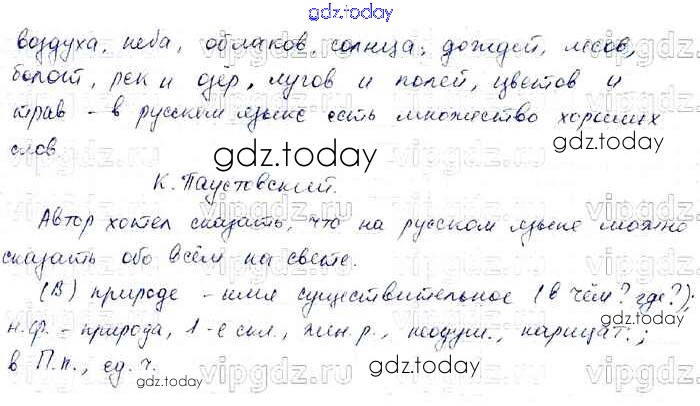 gdz.today
воздуха, неба, облаков, солнца, дождей, лесов,
болот, рек и озёр, лугов и полей, цветов и
трав - в русском языке есть множество хороших
слов.
gdz.today
К. Паустовский.
Автор хотел сказать, что на русском языке можно
сказать обо всём на свете.
(В) природе - имя существительное (в чём? где?);
н.ф. - природа, 1-е скл., жен. р., неодуш., нарицат.;
в П.п., ед. ч.
gdz.today
gdz.today
vipgdz.com